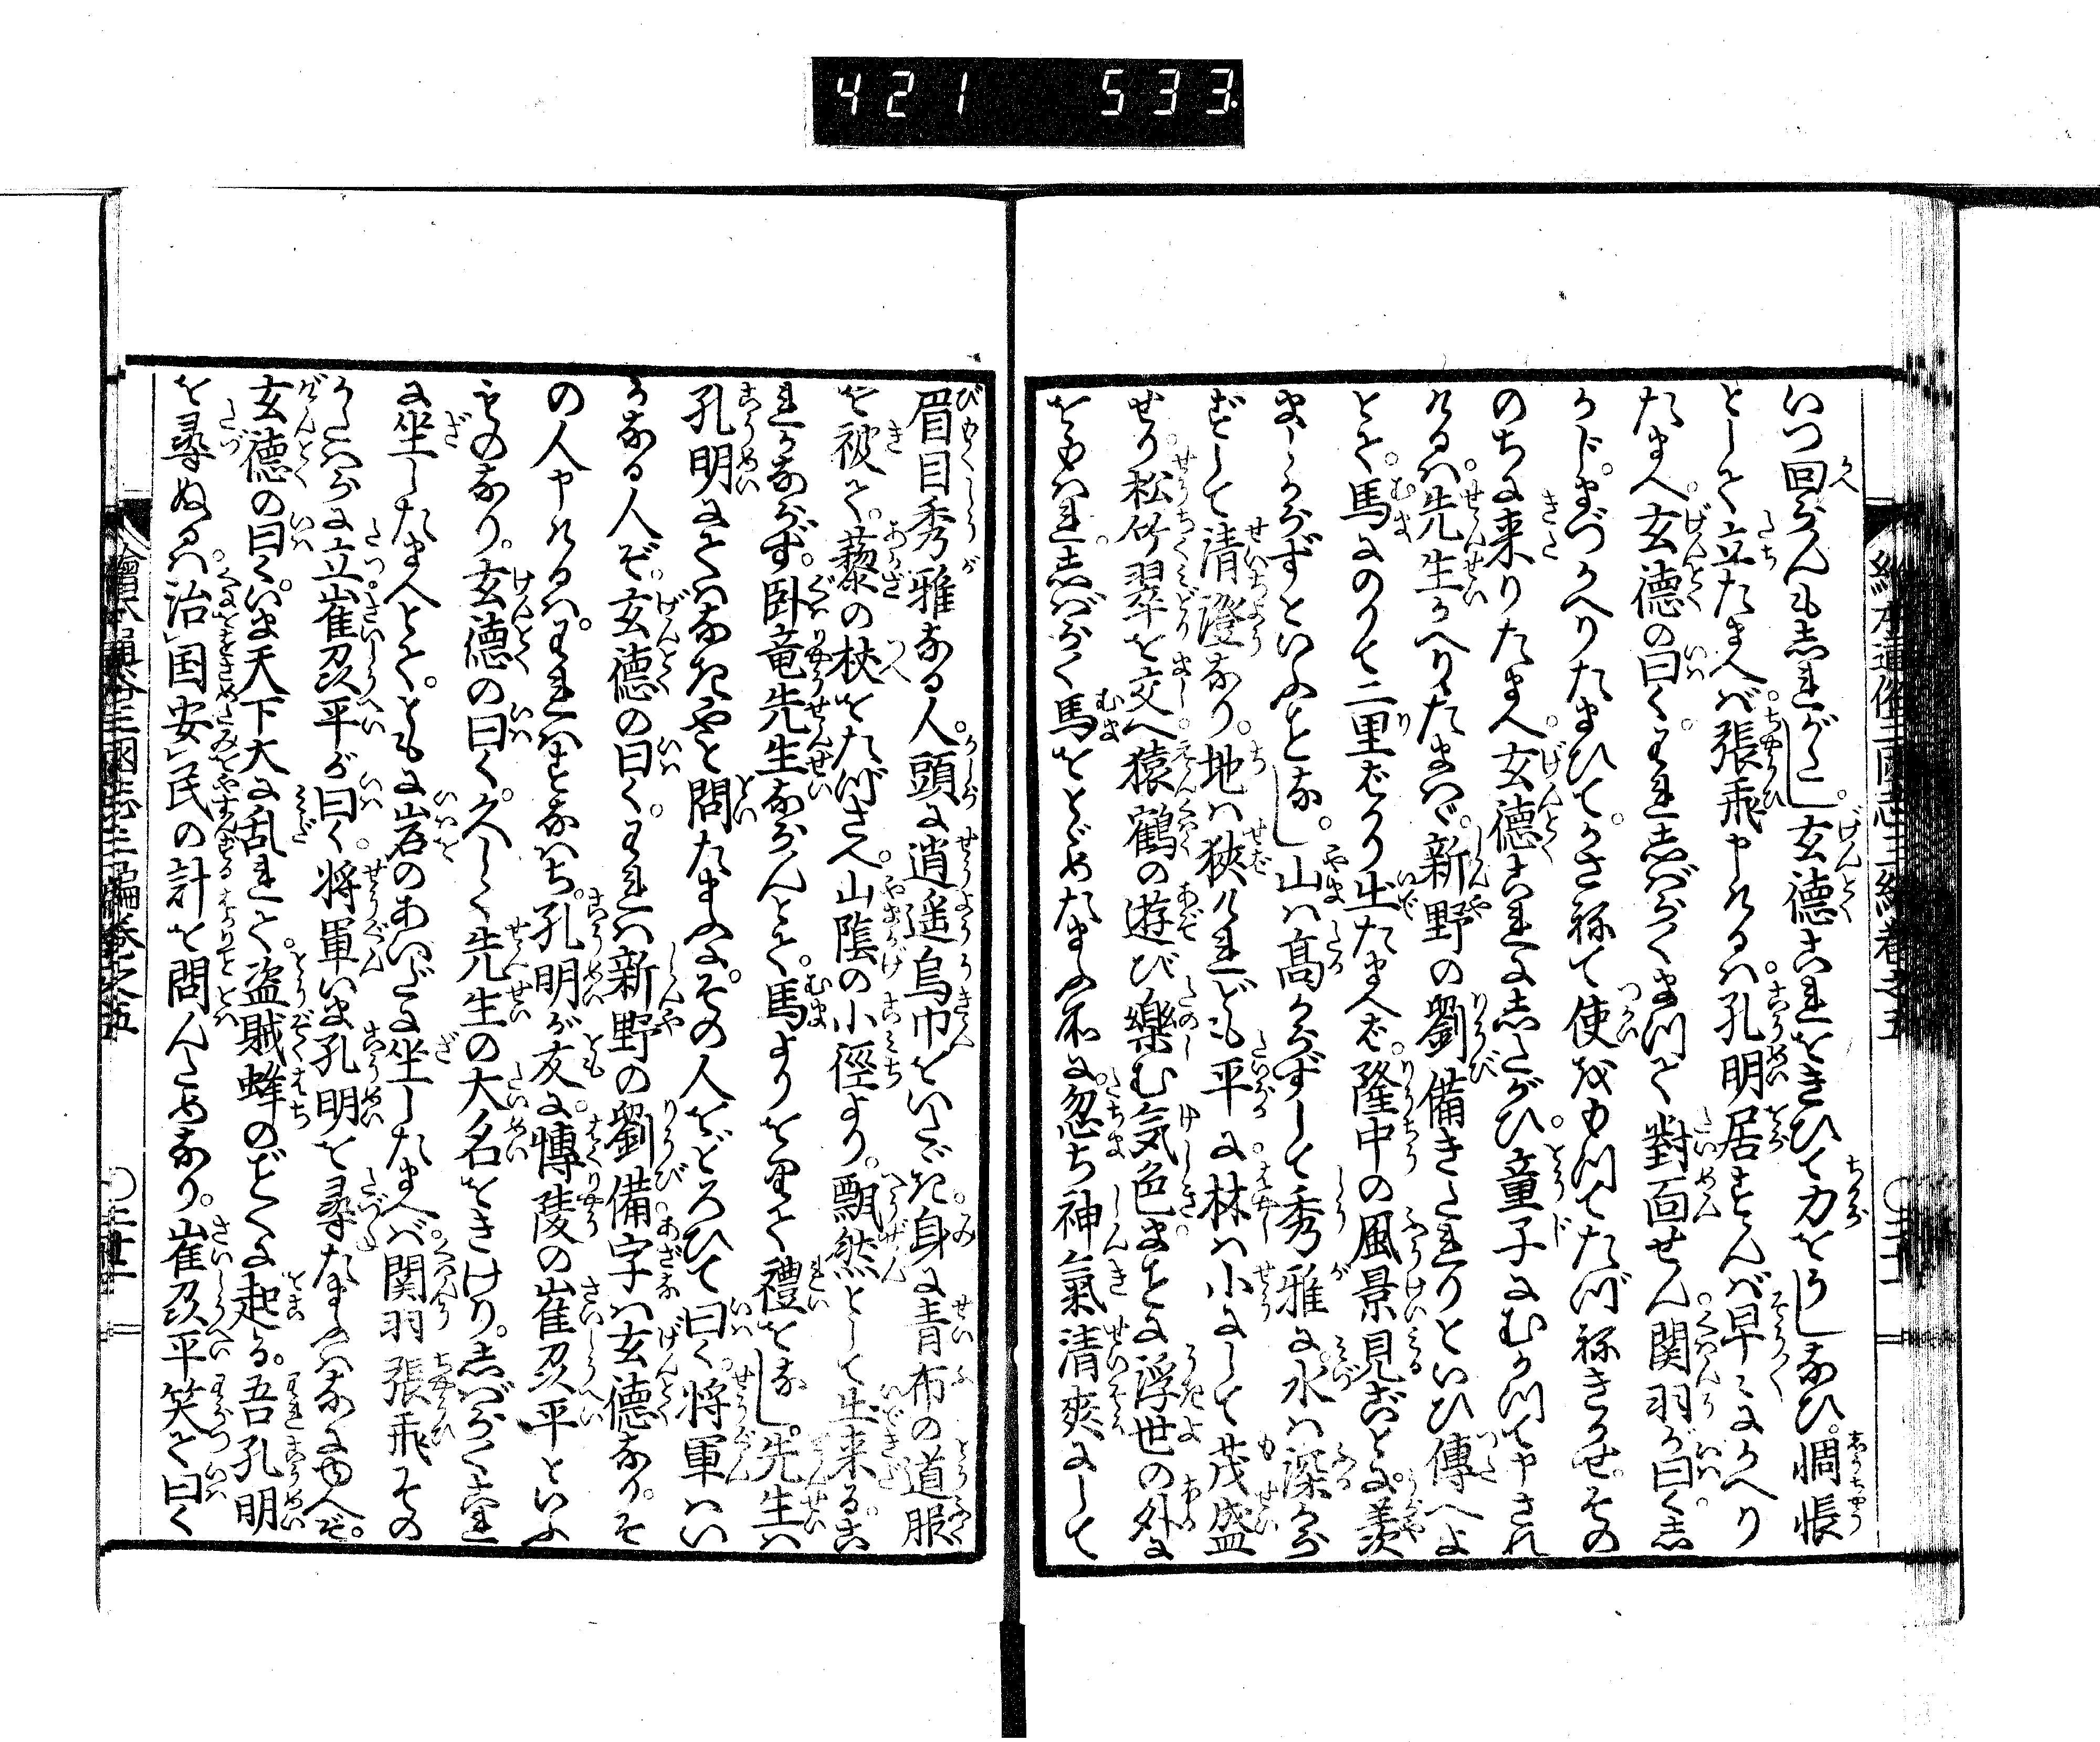 421 533
繪本通俗三國志三編卷之五
いつ回らんも志れがたし。玄德これをきひて力をうしなひ。惆悵
として立たまへバ。張飛申けるハ。孔明居ずんバ早々にかへり
たまへ。玄德の曰く。われ志ばらくまつて對面せん。関羽が曰く。志
かじ。まづかへりたまひて。かさねて使をもつてたづねきかせ。その
のちに来りたまへ。玄德これに志たがひ。童子にむかつて申され
けるハ。先生かへりたまはゞ。新野の劉備きたれりといひ傳へよ
とて。馬にのりて二里ばかり出たまへば。隆中の風景見ごとに。羡
ましからずといふことなし。山ハ高からずして秀雅に。水ハ深から
ずして清澄なり。地ハ狹けれども平に。林ハ小にして茂盛
せり。松竹翠を交へ。猿鶴の遊び樂む気色。まことに浮世の外に
をもハれ。志ばらく馬をとゞめたまふ所に。忽ち神氣清爽にして
眉目秀雅なる人。頭に逍遥烏巾をいたゞき。身に青布の道服
を被て。藜の杖をたづさへ。山蔭の小徑より。飄然として出来る。こ
れかならず。卧竜先生ならんとて。馬よりをりて禮をなし。先生ハ
孔明にてハなきやと問たまふに。その人をどろひて曰く。将軍ハい
かなる人ぞ。玄德の曰く。われハ新野の劉備。字ハ玄德なり。そ
の人申けるハ。われハすなハち。孔明が友に。博陵の崔州平といふ
ものなり。玄德の曰く。久しく先生の大名をきけり。志ばらく壹
に坐したまへとて。ともに岩のあいだに坐したまへバ。関羽張飛その
かたハらに立。崔州平が曰く。将軍いま孔明を尋たまふハなに由へぞ。
玄德の曰く。いま天下大に乱れて。盗賊蜂のごとくに起る。吾孔明
を尋ぬるハ。治国安民の計を問んためなり。崔州平笑て曰く
繪本通俗三國志三編卷之五